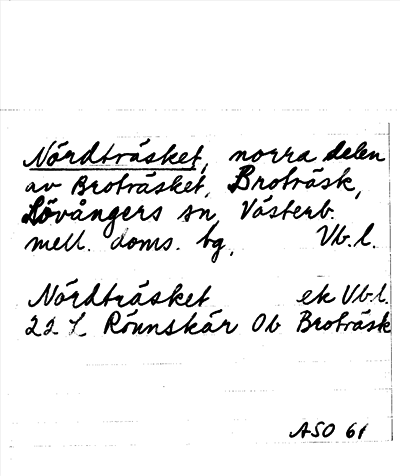 Nördträsket, norra delen
av Broträsket, Broträsk,
Lövångers sn, Västerb.
mell. doms. bg, Vb.l.
Nördträsket ek Vb.l.
22 I Rönnskär Ob Broträsk
ASO 61